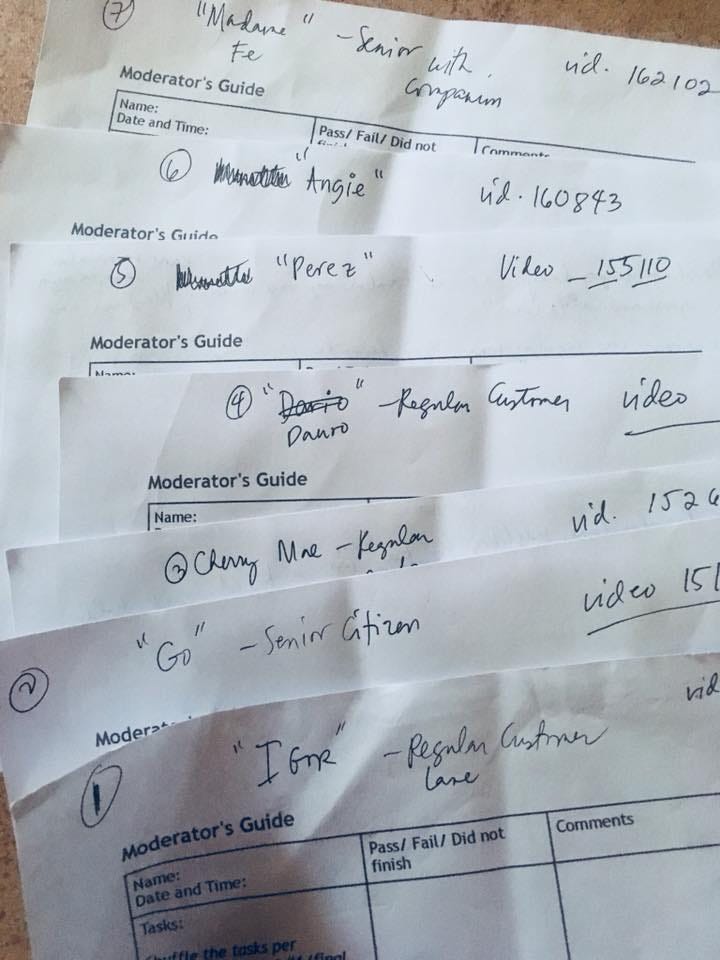 7 "Madame" - Senior with vid. 162102
Fe companion
Moderator's Guide
Name:
Date and Time:
Pass/ Fail/ Did not
Comments
6 "Angie" vid. 160843
Moderator's Guide
5 "Perez" Video - 155110
Moderator's Guide
Name:
4 "Dario" - Regular Customer video
Dauro
Moderator's Guide
Name:
3 Cherry Mae - Regular vid. 1526
2 "Go" - Senior Citizen video 151
Moderat
1 "IGOR" - Regular Customer vid
Lane
Moderator's Guide
Name:
Date and Time:
Pass/ Fail/ Did not
finish
Comments
Tasks:
Shuffle the tasks per